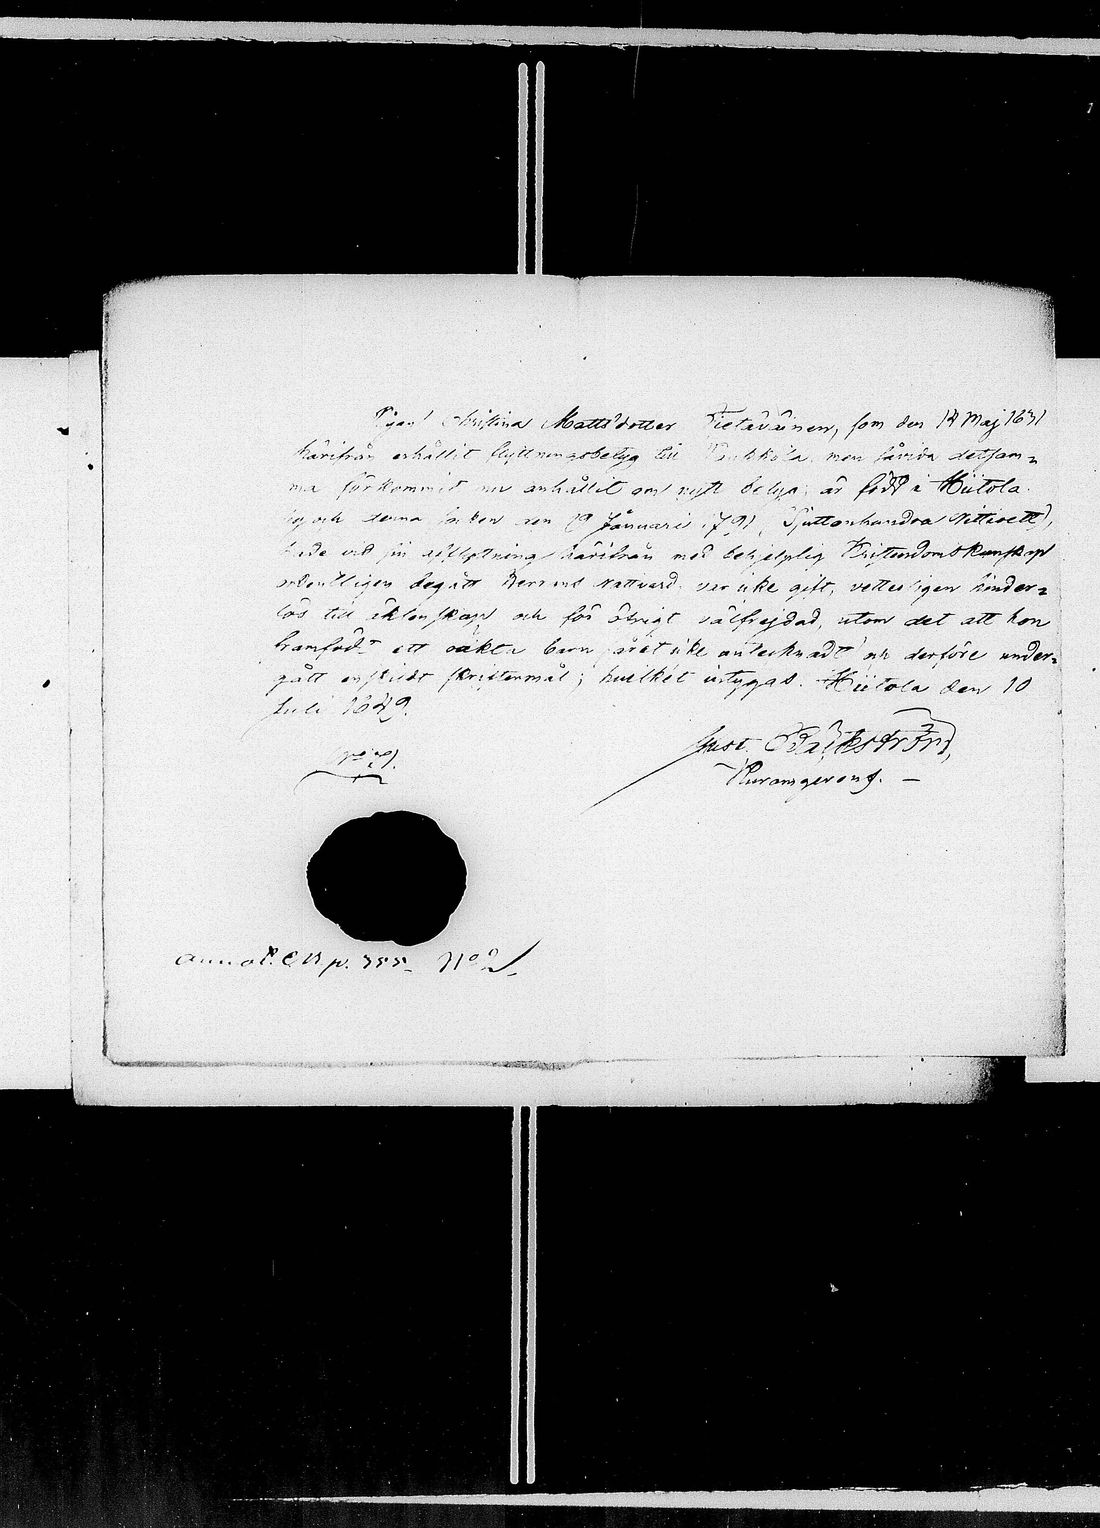 Pigan Christina Mattsdotter Tietäväinen, som den 14 Maj 1831
härifrån erhållit flyttningsbetyg till men såvida detsam=
ma förkommit nu anhållit om nytt betyg, är född i Hiitola
socken den 19 Januari 1791 (Sjuttonhundra Nittioett),
hade vid sin afflyttning härifrån med behjelplig Kristendomskunskap
ordentligen begått Herrans Nattvard, var icke gift, vetterligen hinder=
lös till äktenskap och för öfrigt välfrejdad, utom det att hon
framfödt ett oäkta barn, året icke antecknadt och derföre under=
gått enskildt skriftermål; hvilket intygas. Hiitola den 10
Juli 1849.
Gust.
annot. C B p. 355. No 2